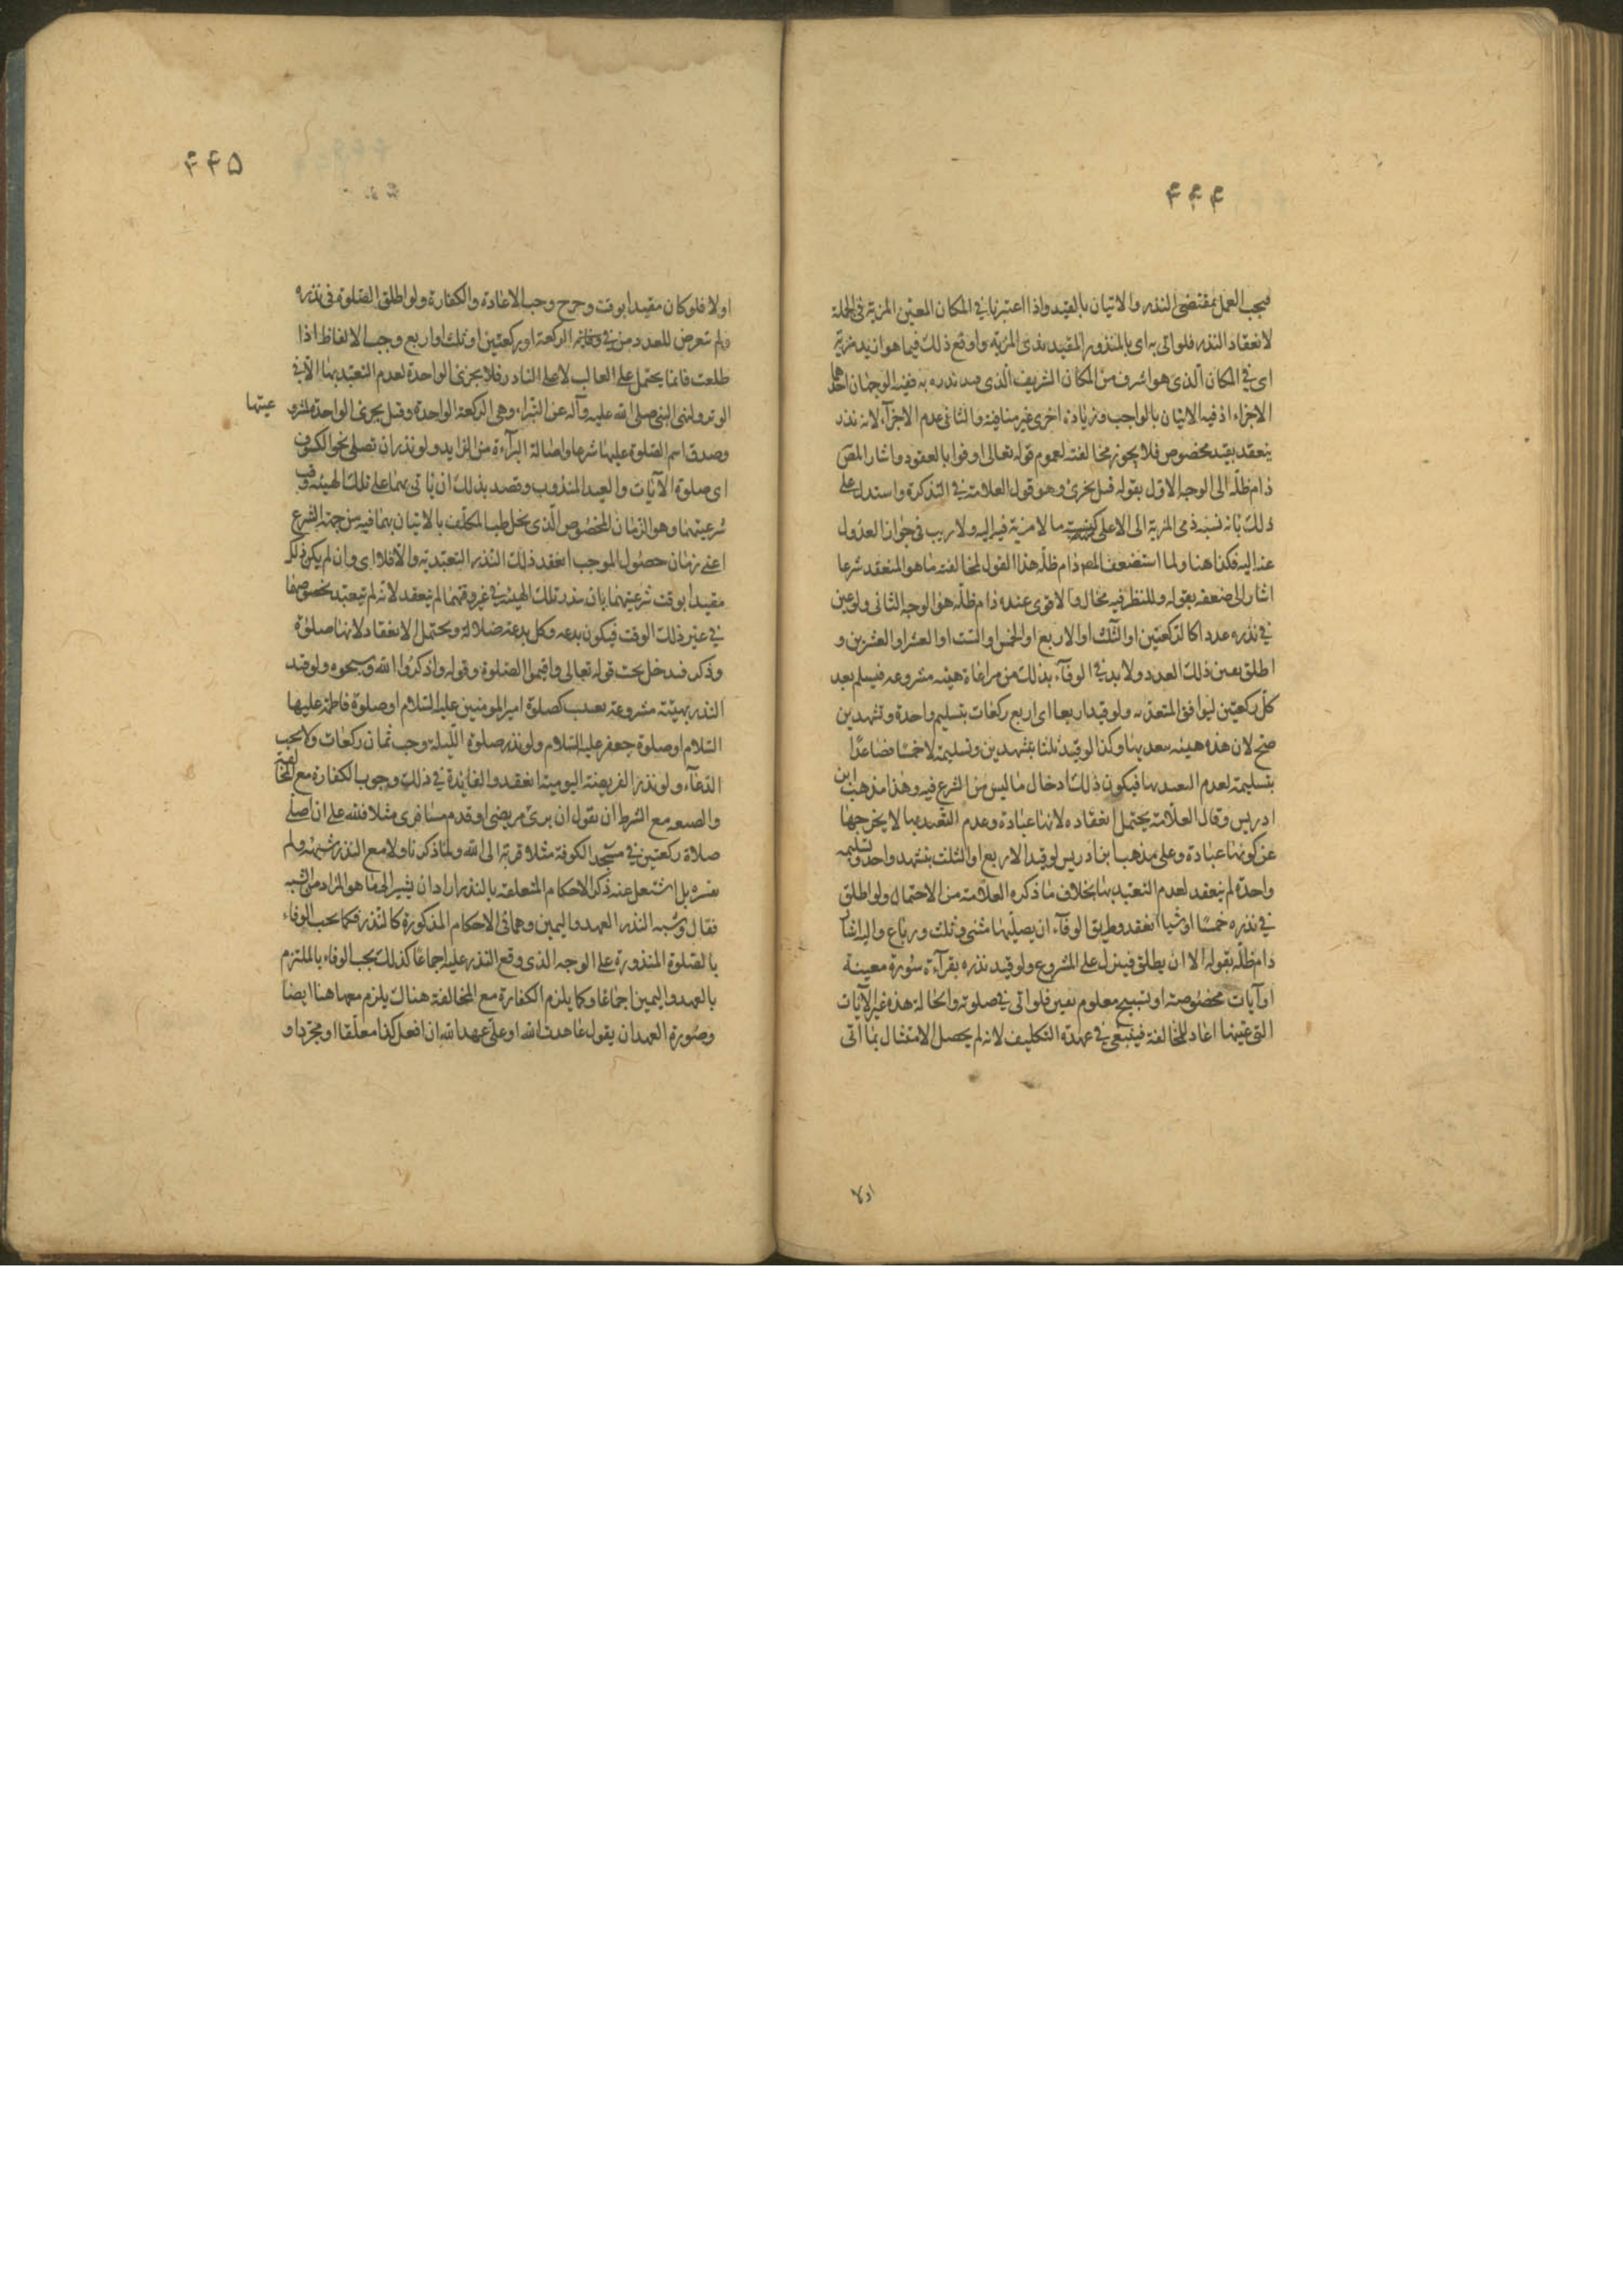 ۴۴۴
فيجب العمل بمقتضى النذر والاتيان بالقيد واذا اعتبرنا في المكان المعين المزية في الجملة
لانعقاد النذر فلو اتى به اى بالمنذور المقيد بذى المزية واوقع ذلك فيما هو ازيد مزية
اى في المكان الذى هو اشرف من المكان الشريف الذى قيد نذره به ففيه الوجهان احدهما
الاجزاء اذ فيه الاتيان بالواجب وزيادة اخرى غير منافية والثانى عدم الاجزآء لانه نذر
ينعقد بقيد مخصوص فلا يجوز مخالفته لعموم قوله تعالى اوفوا بالعقود واشار المص
دام ظلّه الى الوجه الاول بقوله قيل يجزئ وهو قول العلامة في التذكرة واستدل على
ذلك بانه نسبة ذى المزية الى الاعلى كنسبة ما لا مزية فيه اليه ولا ريب في جواز العدول
عنه اليه فكذا هنا ولما استضعف المص دام ظلّه هذا القول لمخالفته ما هو المنعقد شرعا
اشار الى ضعفه بقوله وللنظر فيه مجال والاقوى عنده دام ظلّه هو الوجه الثانى ولو عين
في نذره عددا كالركعتين او الثلث او الاربع او الخمس او الست او العشر او العشرين و
اطلق تعين ذلك العدد ولا بد في الوفآء بذلك من مراعاة هيئة مشروعه فيسلم بعد
كلّ ركعتين ليوافق المتعبد به ولو قيد اربعا اى اربع ركعات بتسليم واحدة وتشهدين
صح لان هذه هيئة تعبد بها وكذا لو قيد ثلثا بتشهدين وتسليمة لا خمسا فصاعدًا
بتسليمة لعدم التعبد بها فيكون ذلك ادخال ما ليس من الشرع فيه وهذا مذهب ابن
ادريس وقال العلّامة يحتمل انعقاده لانها عبادة وعدم التعبد بها لا يخرجها
عن كونها عبادة وعلى مذهب ابن ادريس لو قيد الاربع او الثلث بتشهد واحد وتسليمه
واحدة لم ينعقد لعدم التعبد بها بخلاف ما ذكره العلامة من الاحتمال ولو اطلق
في نذره خمسًا او ستا انعقد وطريق الوفآء ان يصلّيها مثنى وثلث ورباع واليه اشار
دام ظلّه بقوله الا ان يطلق فينزل على المشروع ولو قيد نذره بقرآءة سُورة معينة
او آيات مخصُوصة او تسبيح معلوم تعين فلو اتى في صلوته والحالة هذه غير الآيات
التى عينها اعاد للمخالفة فيبقى في عهدة التكليف لانه لم يحصل الامتثال بما اتى
اولا
۴۴۵
اولا فلو كان مقيدا بوقت وخرج وجب الاعادة والكفارة ولو اطلق الصّلوة في نذره
ولم تعرض للعدد من الركعة او ركعتين او ثلث او اربع وجب الالفاظ اذا
طلعت فانما يحتمل على الغالب لا على النادر فلا يجزى الواحدة لعدم التعبد بها الّا في
الوتر ولنهى النبى صلى الله عليه وآله عن البتراء وهى الركعة الواحدة وقيل يجزى الواحدة لمشرو
عيتها
وصدق اسم الصّلوة عليها شرعا واصالة البرآءة من الزايد ولو نذر ان تصلى نحو الكسوف
اى صلوة الآيات والعيد المندوب وقصد بذلك ان ياتى بهما على تلك الهيئة وقت
شرعيتهما وهو الزمان المخصُوص الّذى يخل طب المكلّف بالاتيان بهما فيه من جهة الشرع
اعنى زمان حصُول الموجب انعقد ذلك النذر التعبد به والّا فلا اى وان لم يكن ذلك
مقيدا بوقت شرعيتهما بان نذر تلك الهيئة في غير وقتهما لم ينعقد لانه لم يتعبد بخصوصها
في غير ذلك الوقت فيكون بدعه وكل بدعة ضلالة ويحتمل الانعقاد لانها صلوة
وذكر فيدخل تحت قوله تعالى واقيموا الصلوة وقوله واذكروا الله وسبحوه ولو قيد
النذر بهيئة مشروعة تعبد كصلوة امير المومنين عليه السّلام او صلوة فاطمة عليها
السّلام او صلوة جعفر عليه السّلام ولو نذر صلوة اللّيلة وجب ثمان ركعات ولا يجب
الدّعآء ولو نذر الفريضة اليومية انعقد والفايدة في ذلك وجوب الكفارة مع المخالفة
والصيغه مع الشرط ان يقول ان برئ مريضى او قدم مسافرى مثلا فلله على ان اصلّى
صلاة ركعتين في مسجد الكوفة مثلا قربة الى الله ولما ذكرنا ولا مع النذر شبهه ولم
يفسره بل اشتغل عنه بذكر الاحكام المتعلقه بالنذر اراد ان يشير الى ما هو المراد من الشبه
فقال وشبه النذر العهد واليمين وهما في الاحكام المذكورة كالنّذر فكما يجب الوفاء
بالصّلوة المنذورة على الوجه الذى وقع النّذر عليه اجماعًا كذلك يجب الوفاء بالملتزم
بالعهد واليمين اجماعًا وكما يلزم الكفارة مع المخالفة هناك يلزم معها هنا ايضا
وصُورة العهد ان يقول عاهدت الله او علّى عهد الله ان افعل كذا معلّقا او مجرّدا و